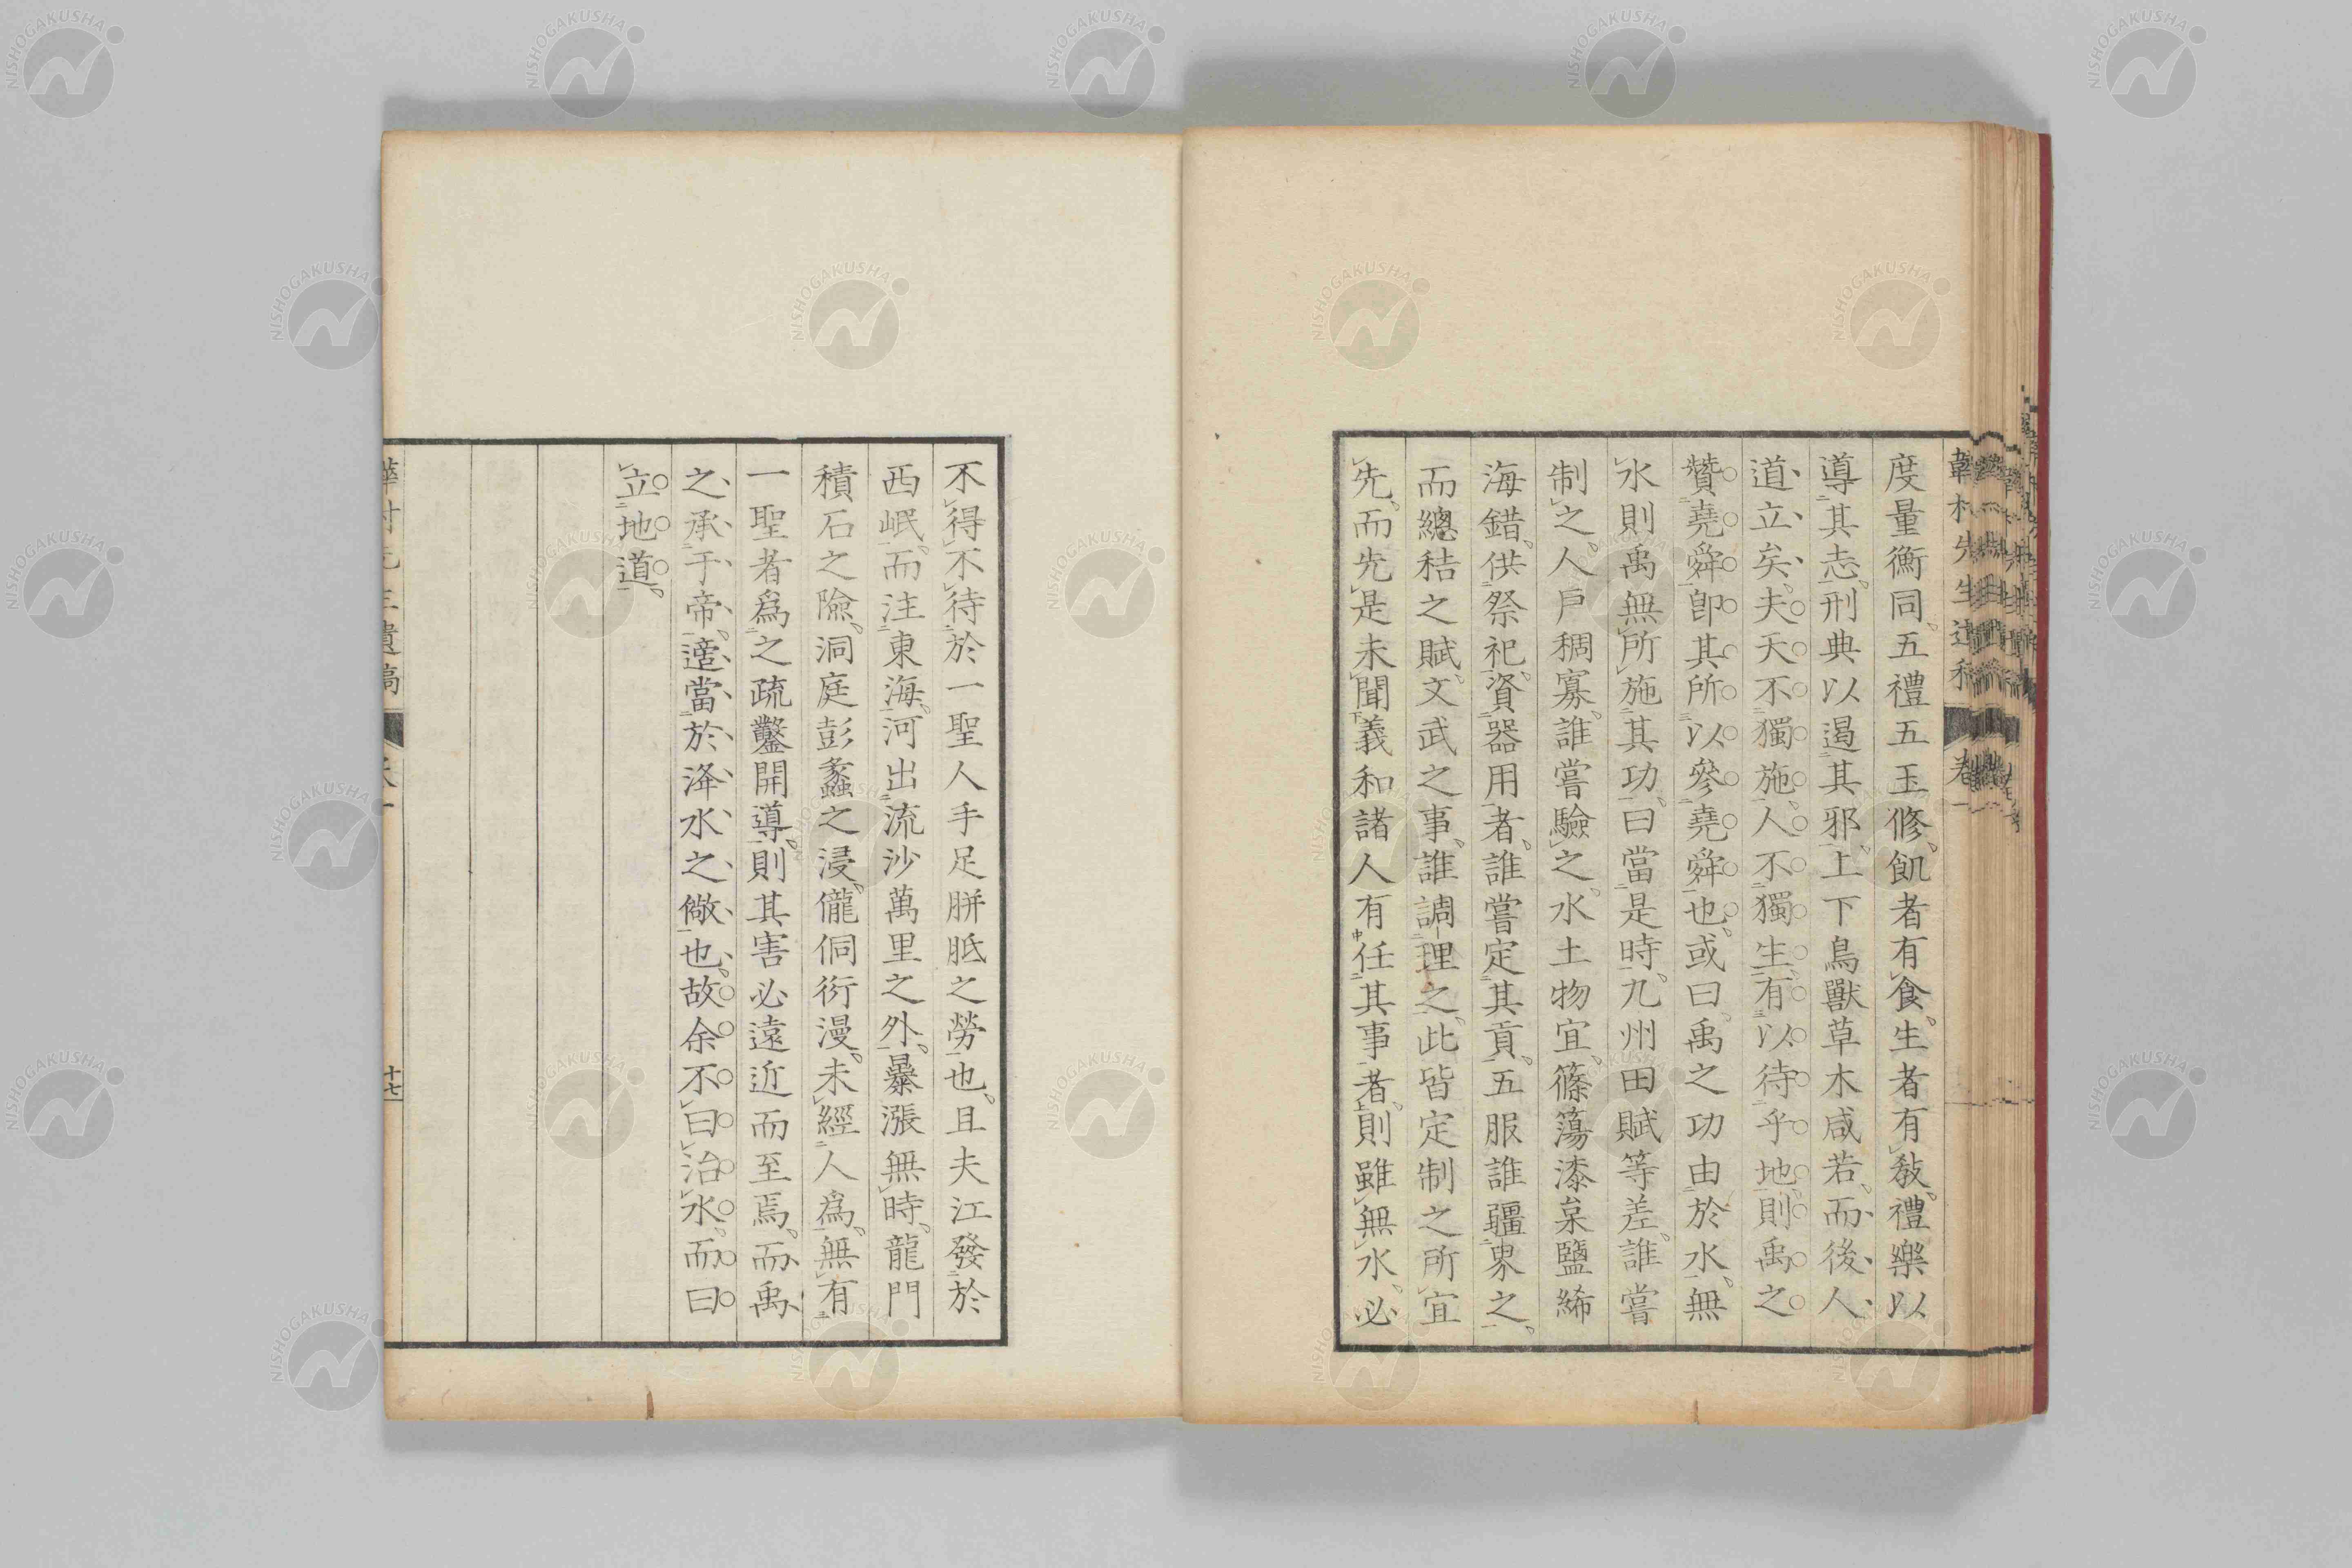 度量衡同五禮五玉修飢者有食生者有教禮樂以
導其志刑典以遏其邪上下鳥獸草木咸若而後人
道立矣夫天不獨施人不獨生有以待乎地則禹之
贊堯舜卽其所以參堯舜也或曰禹之功由於水無
水則禹無所施其功曰當是時九州田賦等差誰嘗
制之人戶稠寡誰嘗驗之水土物宜篠簜漆枲鹽絺
海錯供祭祀資器用者誰嘗定其貢五服誰疆界之
而總秸之賦文武之事誰調理之此皆定制之所宜
先而先是未聞義和諸人有任其事者則雖無水必
不得不待於一聖人手足胼胝之勞也且夫江發於
西岷而注東海河出流沙萬里之外暴漲無時龍門
積石之險洞庭彭蠡之浸儱侗衍漫未經人爲無有
一聖者爲之疏鑿開導則其害必遠近而至焉而禹
之承于帝適當於洚水之儆也故余不曰治水而曰
立地道
十七
NISHOGAKUSHA